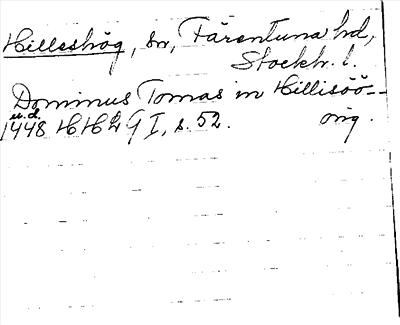 Hilleshög, sn, Färentuna hd,
Stockh. l.
Dominus Tomas in Hillisöö--
u.d.
1448 HH2 G I, s. 52. orig.